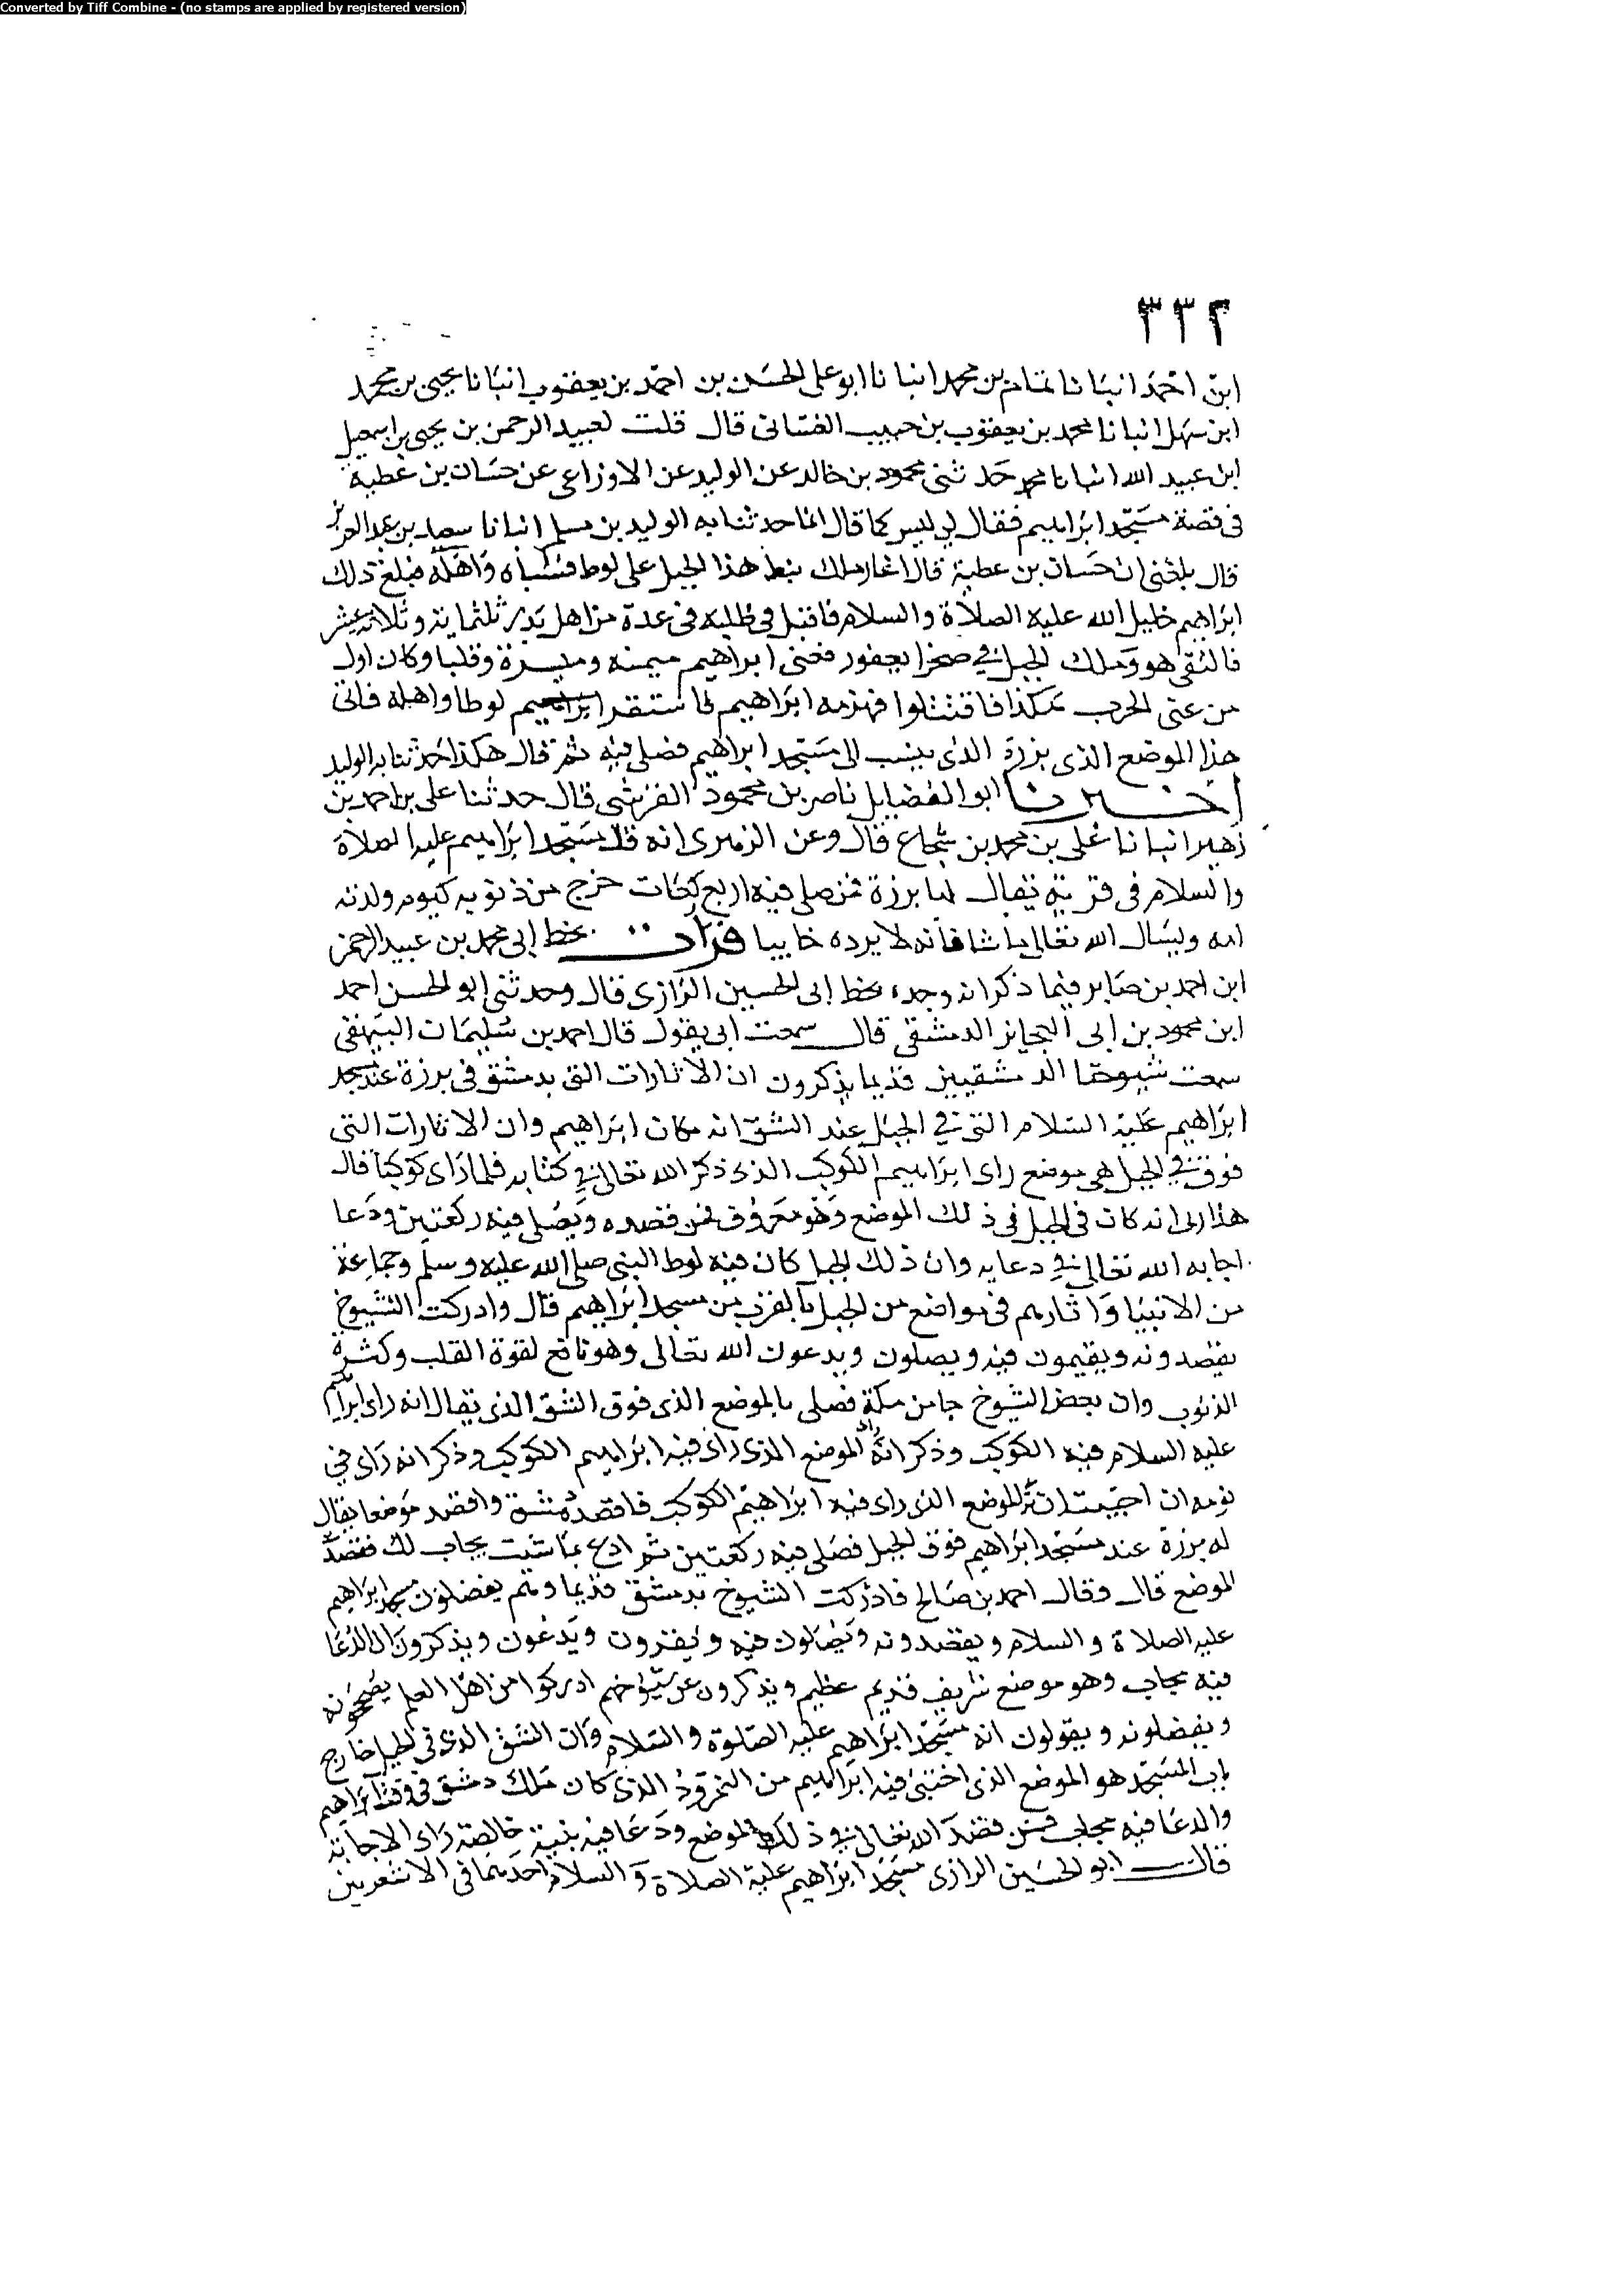 Converted by Tiff Combine - (no stamps are applied by registered version)
٣٣٢
ابن احمد انبانا تمام بن محمد انبانا ابو على الحسن بن احمد بن يعقوب انبانا يحيى بن محمد
ابن سهل انبانا محمد بن يعقوب بن حبيب الغسانى قال قلت لعبيد الرحمن بن يحيى بن اسمعيل
ابن عبيد الله انبانا محمد حدثنى محمود بن خالد عن الوليد عن الاوزاعى عن حسان بن عطية
فى قصة مسجد ابراهيم فقال لى ليس كما قال انما حدثنا به الوليد بن مسلم انبانا سعيد بن عبد العزيز
قال بلغنى ان حسان بن عطية قال اغار ملك نبط هذا الجبل على لوط فسباه واهله فبلغ ذلك
ابراهيم خليل الله عليه الصلاة والسلام فاقبل فى طلبه فى عدة من اهل بدر ثلثماية وثلاثة عشر
فالتقى هو وملك الجبل فى صحرا يعفور فعبى ابراهيم ميمنة وميسرة وقلبا وكان اول
من عبى الحرب هكذا فاقتتلوا فهزمه ابراهيم فاستنقذ ابراهيم لوطا واهله فاتى
هذا الموضع الذى ببرزة الذى ينسب الى مسجد ابراهيم فصلى فيه ثم قال هكذا حدثنا به الوليد
اخبرنا ابو الفضايل ناصر بن محمود القرشى قال حدثنا على بن احمد بن
زهير انبانا على بن محمد بن شجاع قال وعن الزهرى انه قال مسجد ابراهيم عليه الصلاة
والسلام فى قرية يقال لها برزة فمن صلى فيه اربع ركعات خرج من ذنوبه كيوم ولدته
امه ويسال الله تعالى ما شا فانه لا يرده خايبا قرات بخط ابى محمد بن عبيد الرحمن
ابن احمد بن صابر فيما ذكر انه وجده بخط ابى الحسين الرازى قال وحدثنى ابو الحسن احمد
ابن محمود بن ابى العجايز الدمشقى قال سمعت ابى يقول قال احمد بن سليمان البيهقى
سمعت شيوخنا الدمشقيين قديما يذكرون ان الاثارات التى بدمشق فى برزة عند مسجد
ابراهيم عليه السلام التى فى الجبل عند الشق انه مكان ابراهيم وان الاثارات التى
فوق فى الجبل هى موضع راى ابراهيم الكوكب الذى ذكر الله تعالى فى كتابه فلما راى كوكبا قال
هذا ربى انه كان فى الجبل فى ذلك الموضع وهو معروف فمن قصده ويصلى فيه ركعتين ودعا
اجابه الله تعالى فى دعايه وان ذلك الجبل كان فيه لوط النبى صلى الله عليه وسلم وجماعة
من الانبيا واثارهم فى مواضع من الجبل بالقرب من مسجد ابراهيم قال وادركت الشيوخ
يقصدونه ويقيمون فيه ويصلون ويدعون الله تعالى وهو نافع لقوة القلب وكثرة
الذنوب وان بعض الشيوخ جا من مكة فصلى بالموضع الذى فوق الشق الذى يقال انه راى ابراهيم
عليه السلام فيه الكوكب وذكر انه راى الموضع الذى راى فيه ابراهيم الكوكب وذكر انه راى فى
نومه ان احببت ان ترى الموضع الذى راى فيه ابراهيم الكوكب فاقصد دمشق واقصد موضعا يقال
له برزة عند مسجد ابراهيم فوق الجبل فصلى فيه ركعتين ثم ادع بما شيت يجاب لك فقصد
الموضع قال وقال احمد بن صالح فادركت الشيوخ بدمشق قديما وهم يفضلون مسجد ابراهيم
عليه الصلاة والسلام ويقصدونه ويصلون فيه ويقرون ويدعون ويذكرون ان الدعا
فيه يجاب وهو موضع شريف قديم عظيم ويذكرون عن شيوخهم ادركوا من اهل العلم يصححونه
ويفضلونه ويقولون انه مسجد ابراهيم عليه الصلوة والسلام وان الشق الذى فى الجبل خارج
باب المسجد هو الموضع الذى اختبى فيه ابراهيم من النمرود الذى كان ملك دمشق فى وقت ابراهيم
والدعا فيه مجاب فمن قصد الله تعالى فى ذلك الموضع ودعا فيه بنية خالصة راى الاجابة
قال ابو الحسين الرازى مسجد ابراهيم عليه الصلاة والسلام احدهما فى الاشعريين